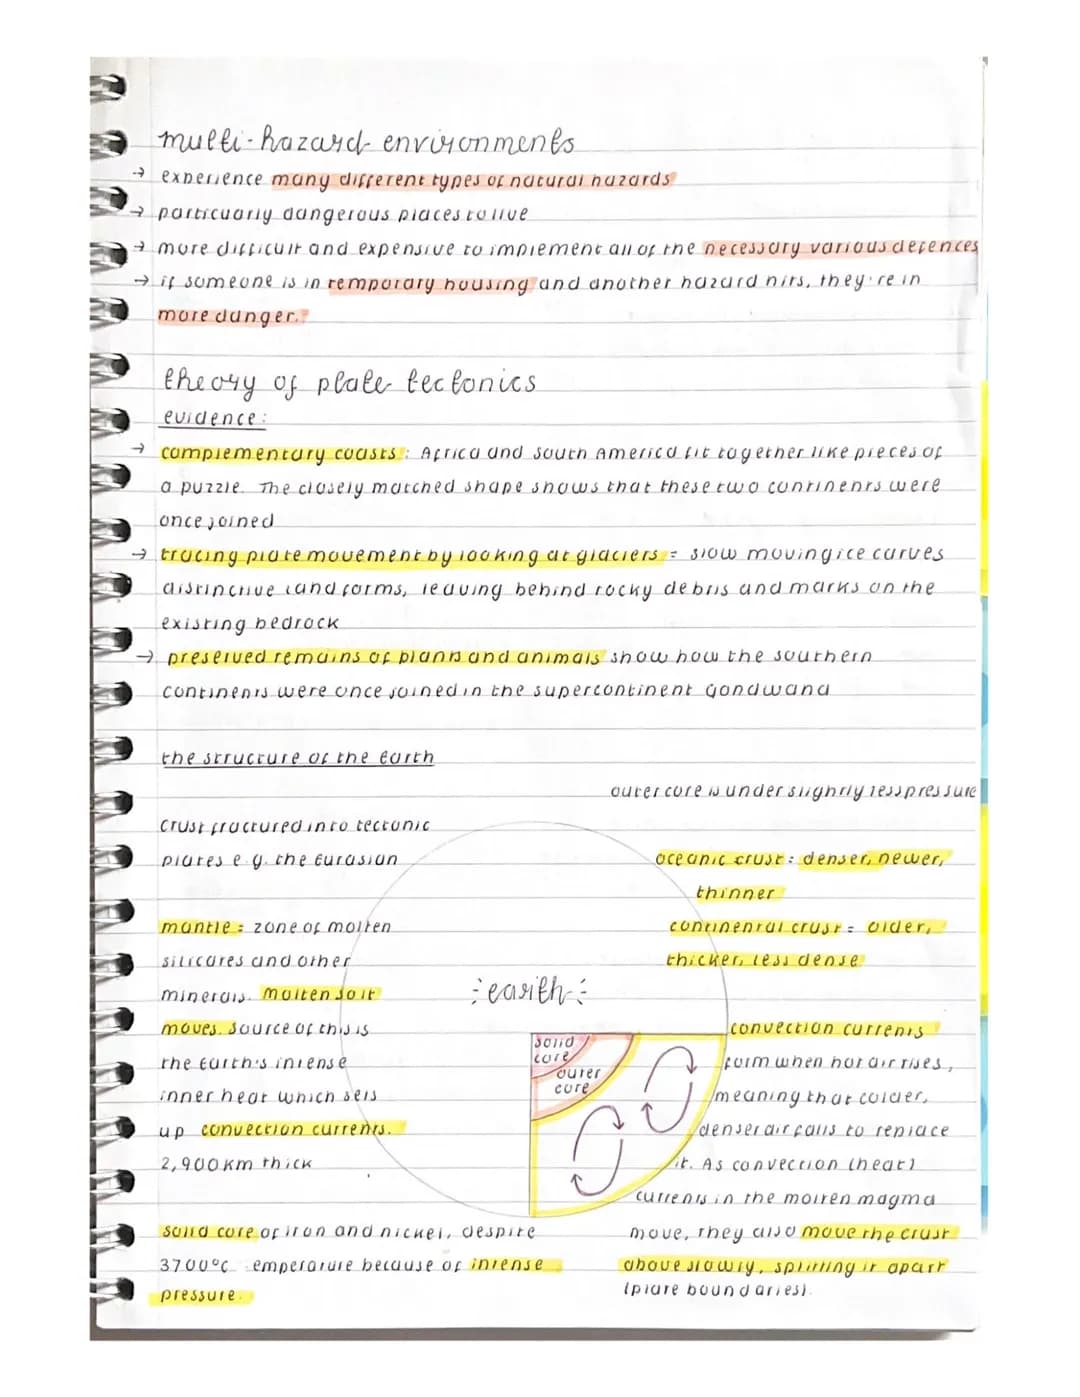 multi-hazard environments
→ experience many different types of natural hazards
→ particuarly dangerous places to live
→ more difficult and expensive to implement all of the necessary various defences
→ if someone is in temporary housing and another hazard hits, they're in
more danger.
theory of plate tectonics
evidence:
→ complementary coasts: Africa and South America fit together like pieces of
a puzzle. The closely matched shape shows that these two continents were
once joined
→ tracing plate movement by looking at glaciers = slow moving ice carves
distinctive land forms, leaving behind rocky debris and marks on the
existing bedrock
→ preserved remains of plants and animals show how the southern
continents were once joined in the supercontinent Gondwana
the structure of the Earth
outer core is under slightly less pressure
crust fractured into tectonic
plates e.g. the Eurasian
oceanic crust: denser, newer,
thinner
continental crust = older,
thicker, less dense
mantle: zone of molten
silicates and other
minerals. Molten so it
moves. Source of this is
the Earth's intense
inner heat which sets
up convection currents.
2,900km thick
earth
solid
core
outer
core
convection currents
form when hot air rises,
meaning that colder,
denser air falls to replace
it. As convection (heat)
currents in the molten magma
move, they also move the crust
above slowly, splitting it apart
(plate boundaries).
solid core of iron and nickel, despite
3700°C emperature because of intense
pressure.